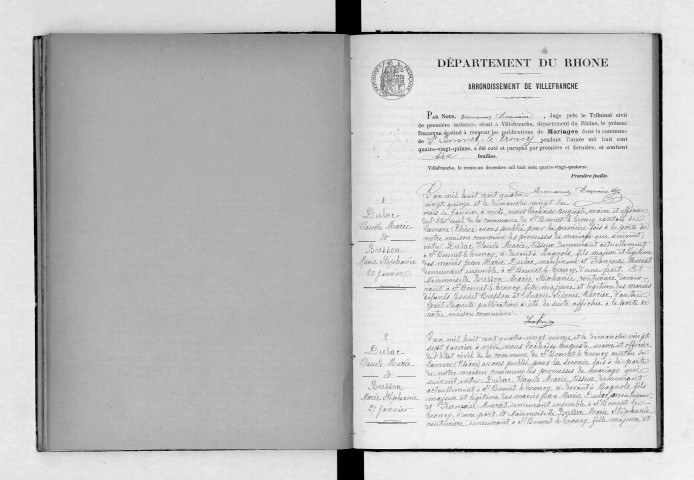 DÉPARTEMENT DU RHONE
ARRONDISSEMENT DE VILLEFRANCHE
PAR NOUS, Juge près le Tribunal civil
de première instance, séant à Villefranche, département du Rhône, le présent
REGISTRE destiné à recevoir les publications de Mariages dans la commune
de St Bonnet-le-Troncy pendant l'année mil huit cent
quatre-vingt-quinze, a été coté et paraphé par première et dernière, et contient
six feuilles.
Villefranche, le trente-un décembre mil huit cent quatre-vingt-quatorze.
Première feuille.
1
Dulac
Claude Marie
et
Bresson
Marie Stéphanie
20 janvier
L'an mil huit cent quatre
vingt quinze et le dimanche vingt du
mois de janvier à midi, nous Auguste, maire et officier
de l'état civil de la commune de St Bonnet le Troncy canton de
Lamure (Rhône) avons publié pour la première fois à la porte de
notre maison commune les promesses de mariage qui suivent,
entre: Dulac, Claude Marie, tisseur, demeurant actuellement
à St Bonnet-le-Troncy, et devant à fils majeur et légitime
des mariés Jean Marie Dulac, et Françoise
demeurant ensemble à St Bonnet-le-Troncy d'une part. Et
Mademoiselle Bresson Marie Stéphanie, couturière, demeu-
rant à St Bonnet-le-Troncy, fille majeure et légitime des mariés
défunts Benoît Bresson et Marie Mercier, d'autre
part. Laquelle publication a été de suite affichée à la porte de
notre maison commune.
2
Dulac
Claude Marie
et
Bresson
Marie Stéphanie
27 janvier
L'an mil huit cent quatre-vingt quinze et le dimanche vingt
sept janvier à midi, nous Auguste, maire et officier
de l'état civil de la commune de St Bonnet le Troncy canton de
Lamure (Rhône) avons publié, pour la seconde fois à la porte
de notre maison commune les promesses de mariage qui
suivent, entre: Dulac, Claude Marie, tisseur demeurant
actuellement à St Bonnet-le-Troncy, et devant à fils
majeur et légitime des mariés Jean Marie Dulac,
et Françoise demeurant ensemble à St Bonnet-le-
Troncy, d'une part, et Mademoiselle Bresson Marie Stéphanie
couturière, demeurant à St Bonnet-le-Troncy, fille majeure et